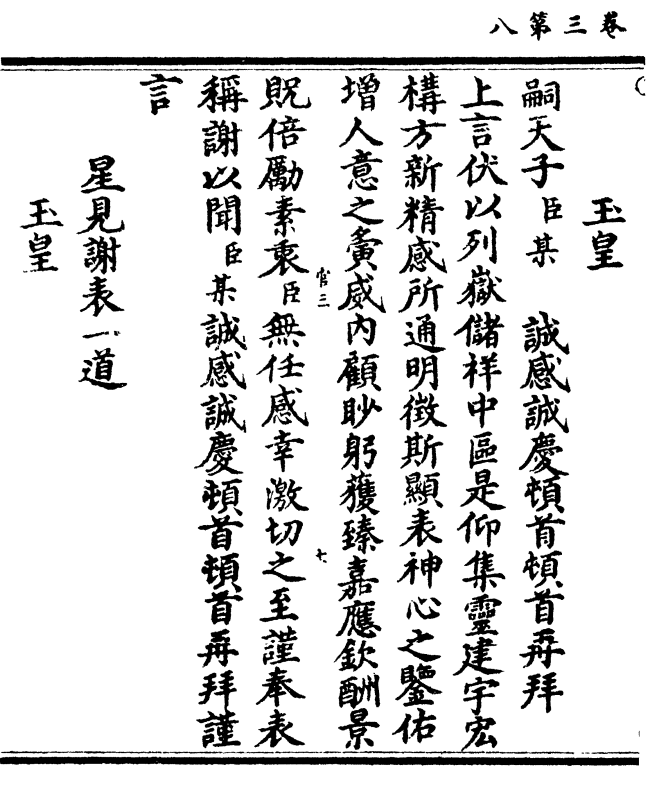 卷三第八
玉皇
嗣天子臣某 誠感誠慶頓首頓首再拜
上言伏以列嶽儲祥中區是仰集靈建宇宏
構方新精感所通明徵斯顯表神心之鑒佑
增人意之夤威內顧眇躬獲臻嘉應欽酬景
官三
七
貺倍勵素衷臣無任感幸激切之至謹奉表
稱謝以聞臣某誠感誠慶頓首頓首再拜謹
言
星見謝表一道
玉皇